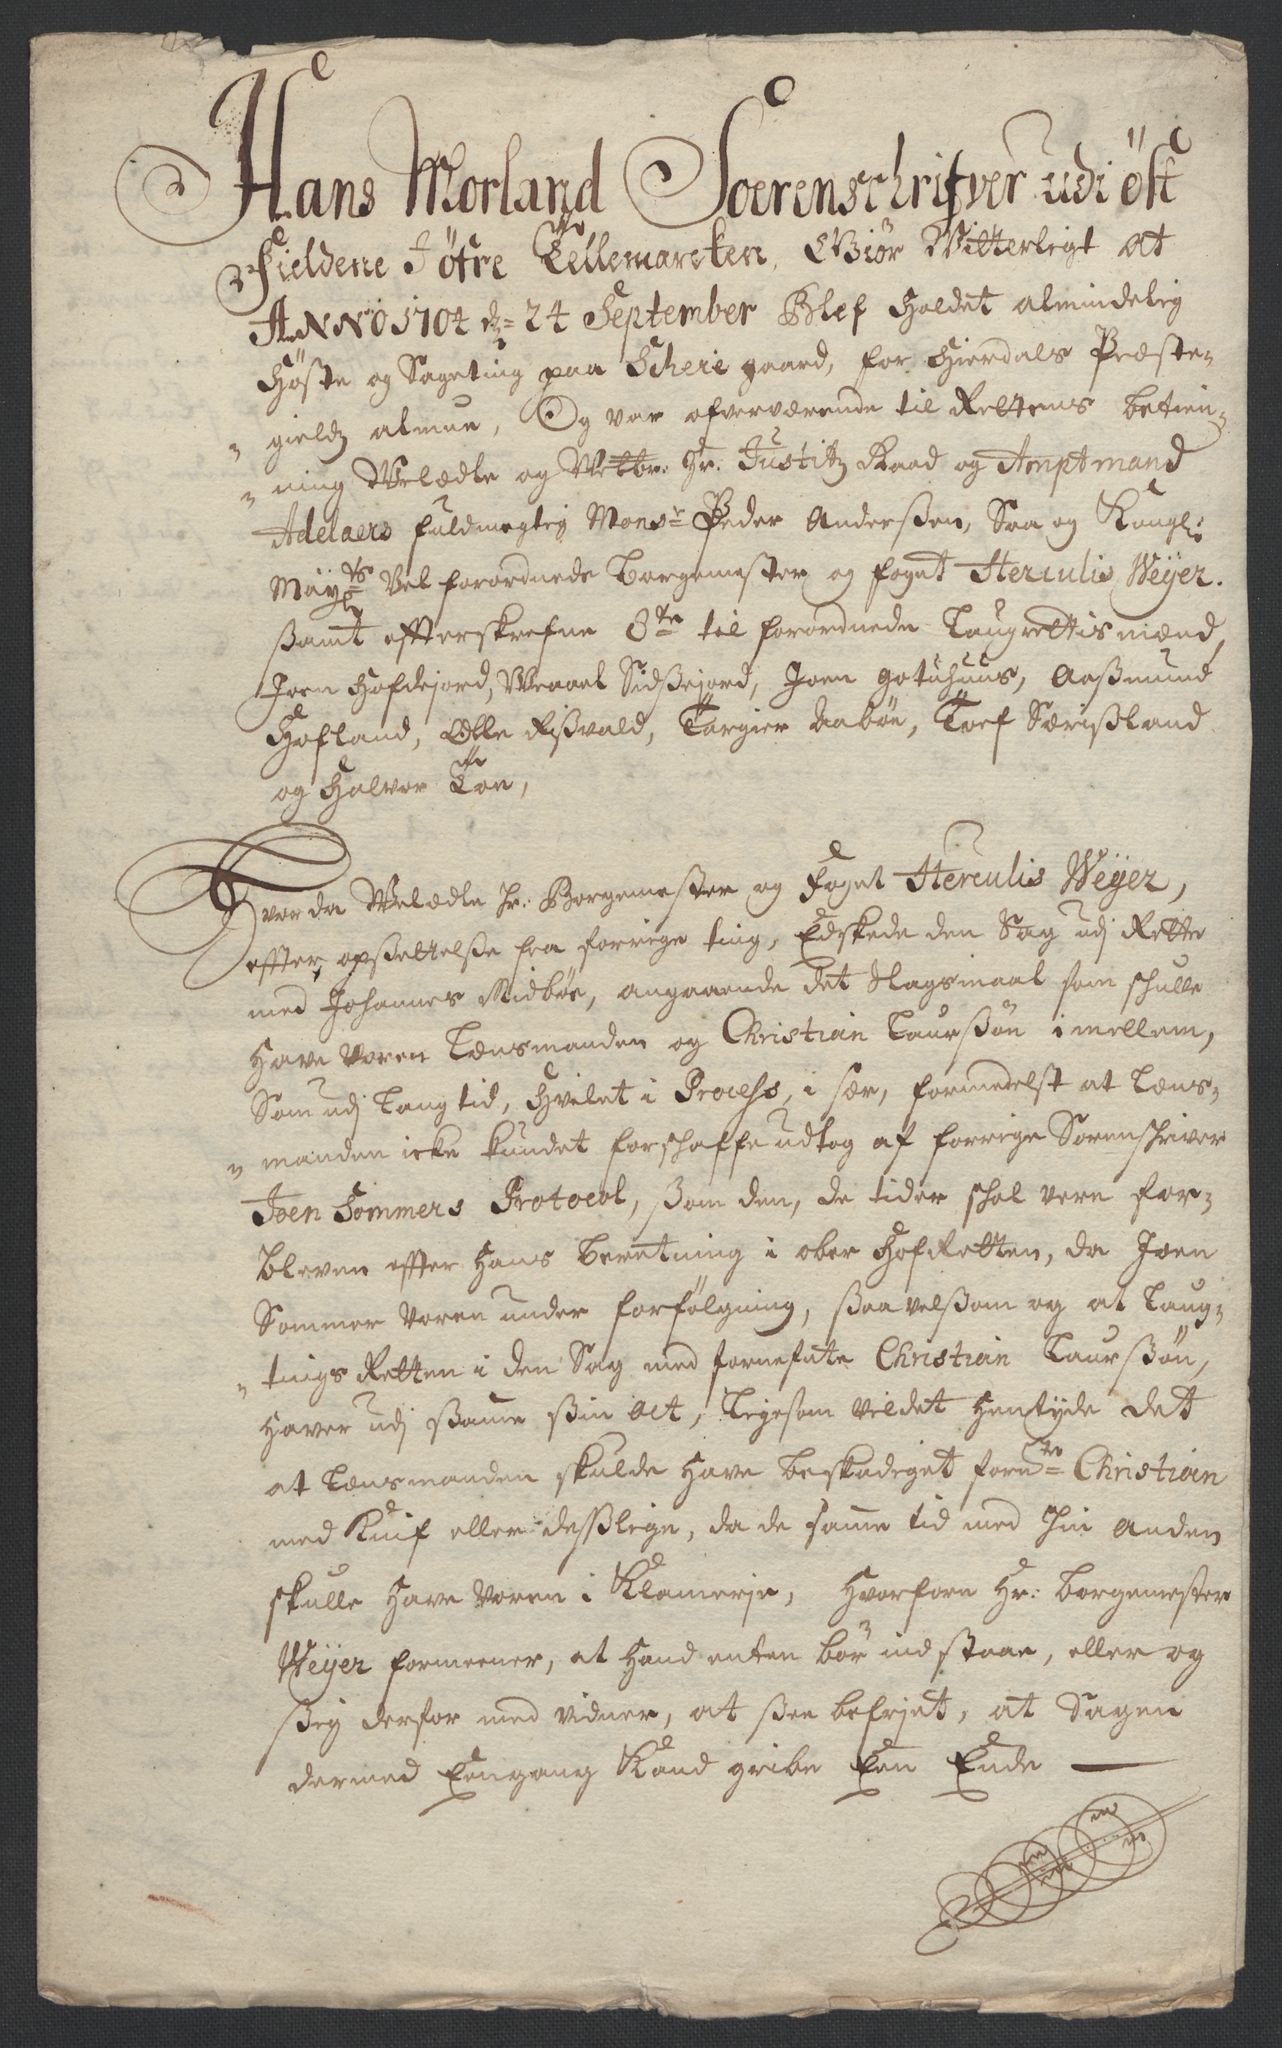 Hans Morland Soerenschrifver udi öst
Fieldene Iöfre Tellemarcken, Giör Witterligt at
ANNO 1704 d: 24 September Blef holdet almindelig
Höste og Sageting paa Scheie gaard, for Hierdals Præste-
gieldz almue, Og var ofverværende til Rettens betien-
ning Velædle og Velbr: Hr. Justitz Raad og Amptmand
Adelaers fuldmegtig Monsr Peder Anderßen, Saa og Kongl:
Mayts Vel forordnede Borgemester og foget Herculis Weÿer.
ßamt effterskrefne 8te til forordnede Laugrettismænd,
Joen Hofdejord, Weaael Sidßejord, Joen Gotuhuus, Aaßmund
Hofland, Olle Rißvald, Targier Aaböe, Toef Særißland
og Halvor Töe,
Hvor da Velædle Hr: Borgemester og Foget Herculis Weÿer,
effter opßettelße fra forrige ting, Edskede den Sag udj Rette
med Johannes Midböe, angaaende det Slagsmaal som schulle
have voren Lensmanden og Christian Laurßön imellem,
Som udj Lang tid, Hvilet i Process, i sær, formedelst at Lens-
manden icke kundet forschaffe udtog af forrige Sorenschriver
Joen Sommers Protocol, ßom den, de tider schal vere for-
bleven effter hans beretning i ober HofRetten, da Joen
Sommer voren under forfölgning, ßaavelßom og at Laug-
tings Retten i den Sag med fornefnte Christian Laurßön,
haver udj ßamme ßin act, ligesom vildet hentyde det
at Lensmanden skulde have beskadiget fornte Christian
med Knif eller deßlige, da de samme tid med hin anden
skulle have voren i Klamerje, Hvorforre Hr: Borgemester
Weÿer formeener, at hand enten bör indstaae, eller og
ßig derfor med vidner, at ßee befrjet, at Sagen
dermed Eengang Kand gribe Een Ende